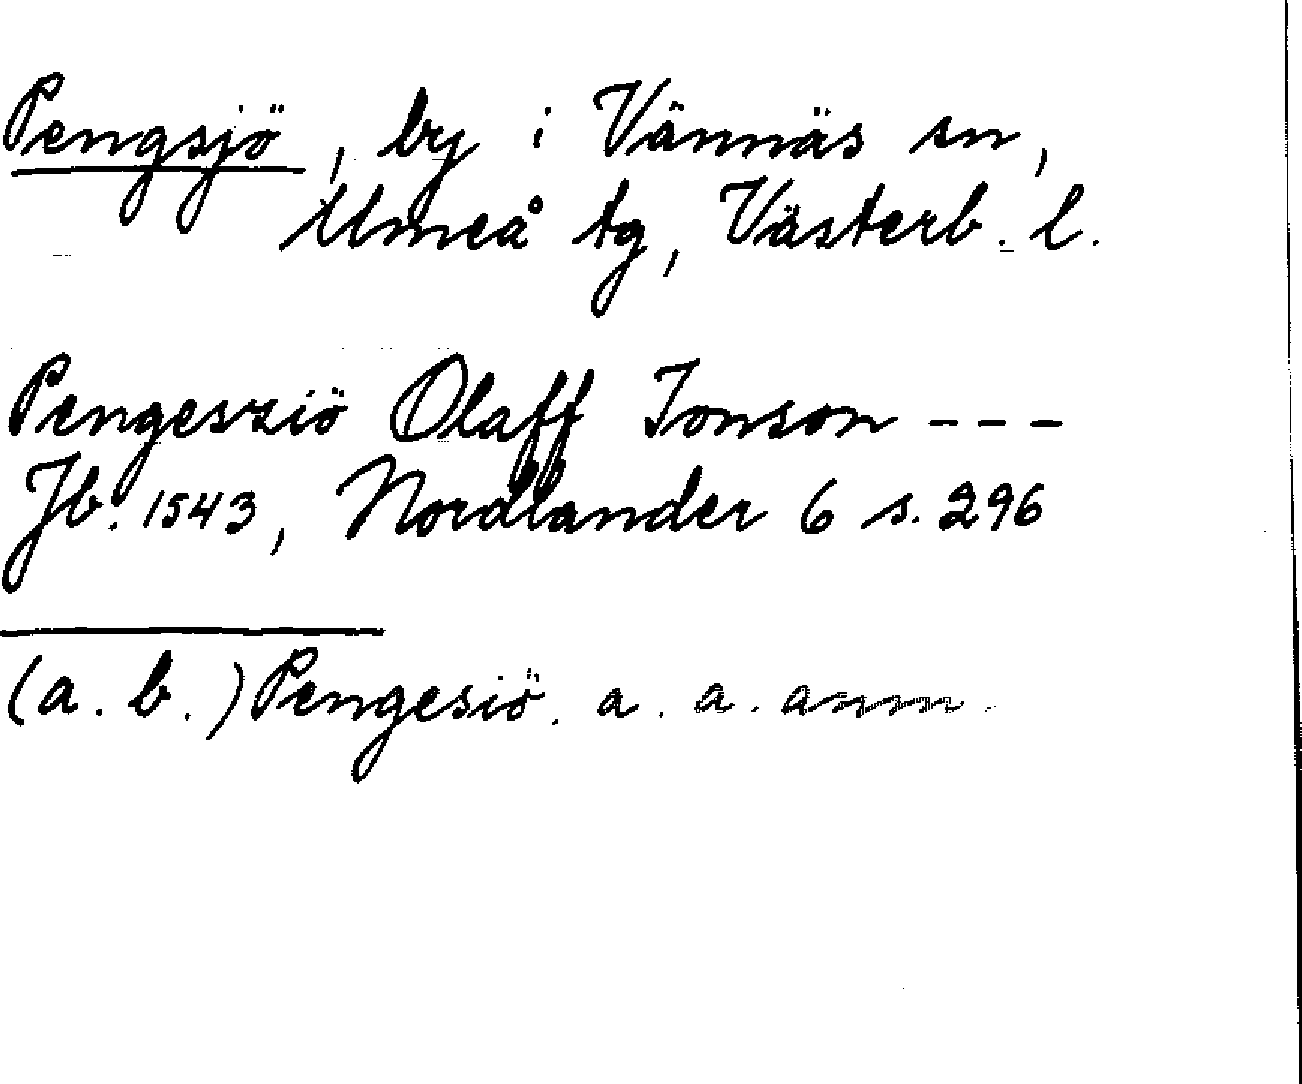 Pengsjö, by i Vännäs sn,
Umeå tg, Västerb. l.
Pengesziö Olaff Jonson ---
Jb. 1543, Nordlander 6 s. 296
(a. b.) Pengesiö. a. a. anm.